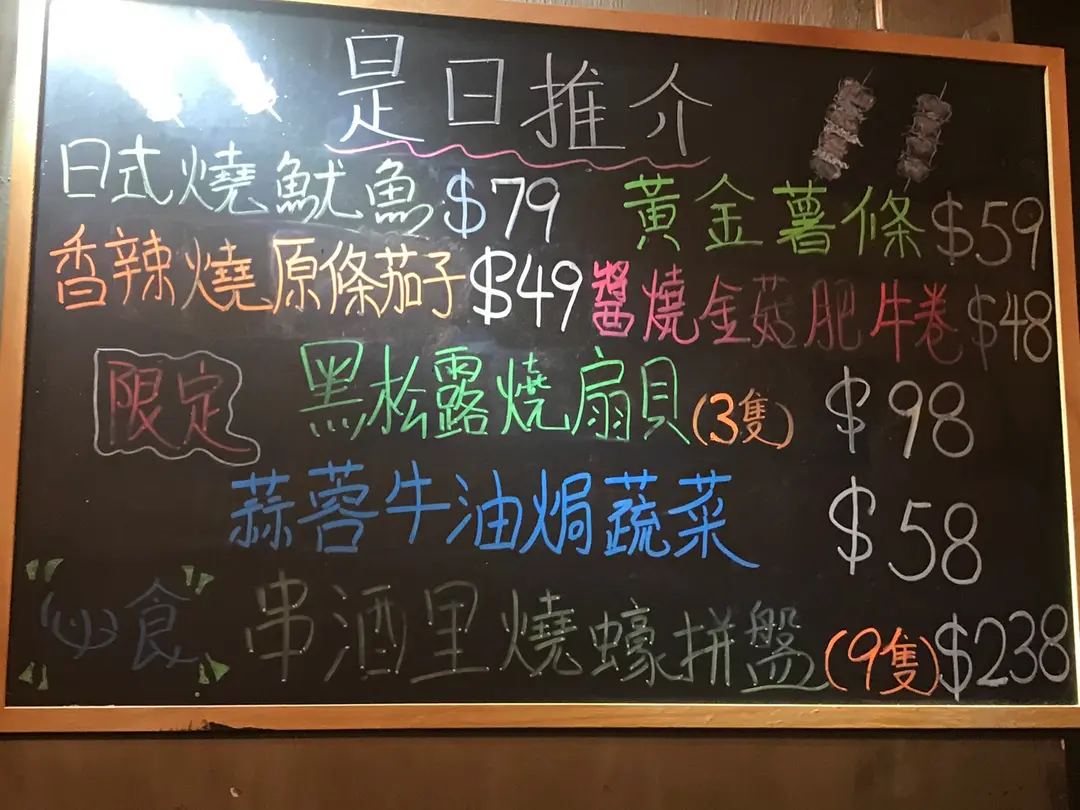 是日推介
日式燒魷魚$79
黃金薯條$59
香辣燒原條茄子$49
醬燒金菇肥牛卷$48
限定 黑松露燒扇貝(3隻) $98
蒜蓉牛油焗蔬菜 $58
必食 串酒里燒蠔拼盤(9隻)$238